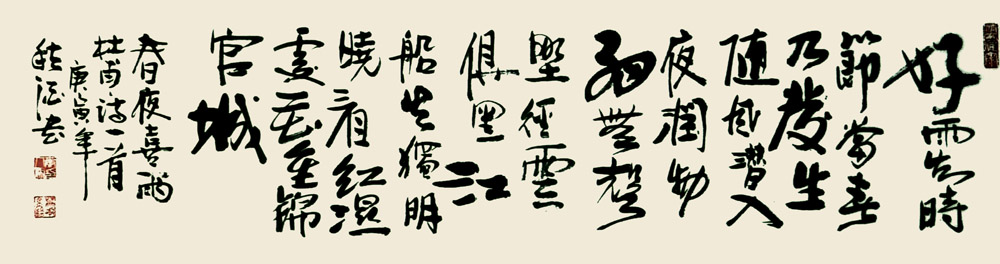 好雨知時
節當春
乃發生
隨風潛入
夜潤物
細無聲
野徑雲
俱黑江
船火獨明
曉看紅濕
處花重錦
官城
春夜喜雨
杜甫詩一首
庚寅年